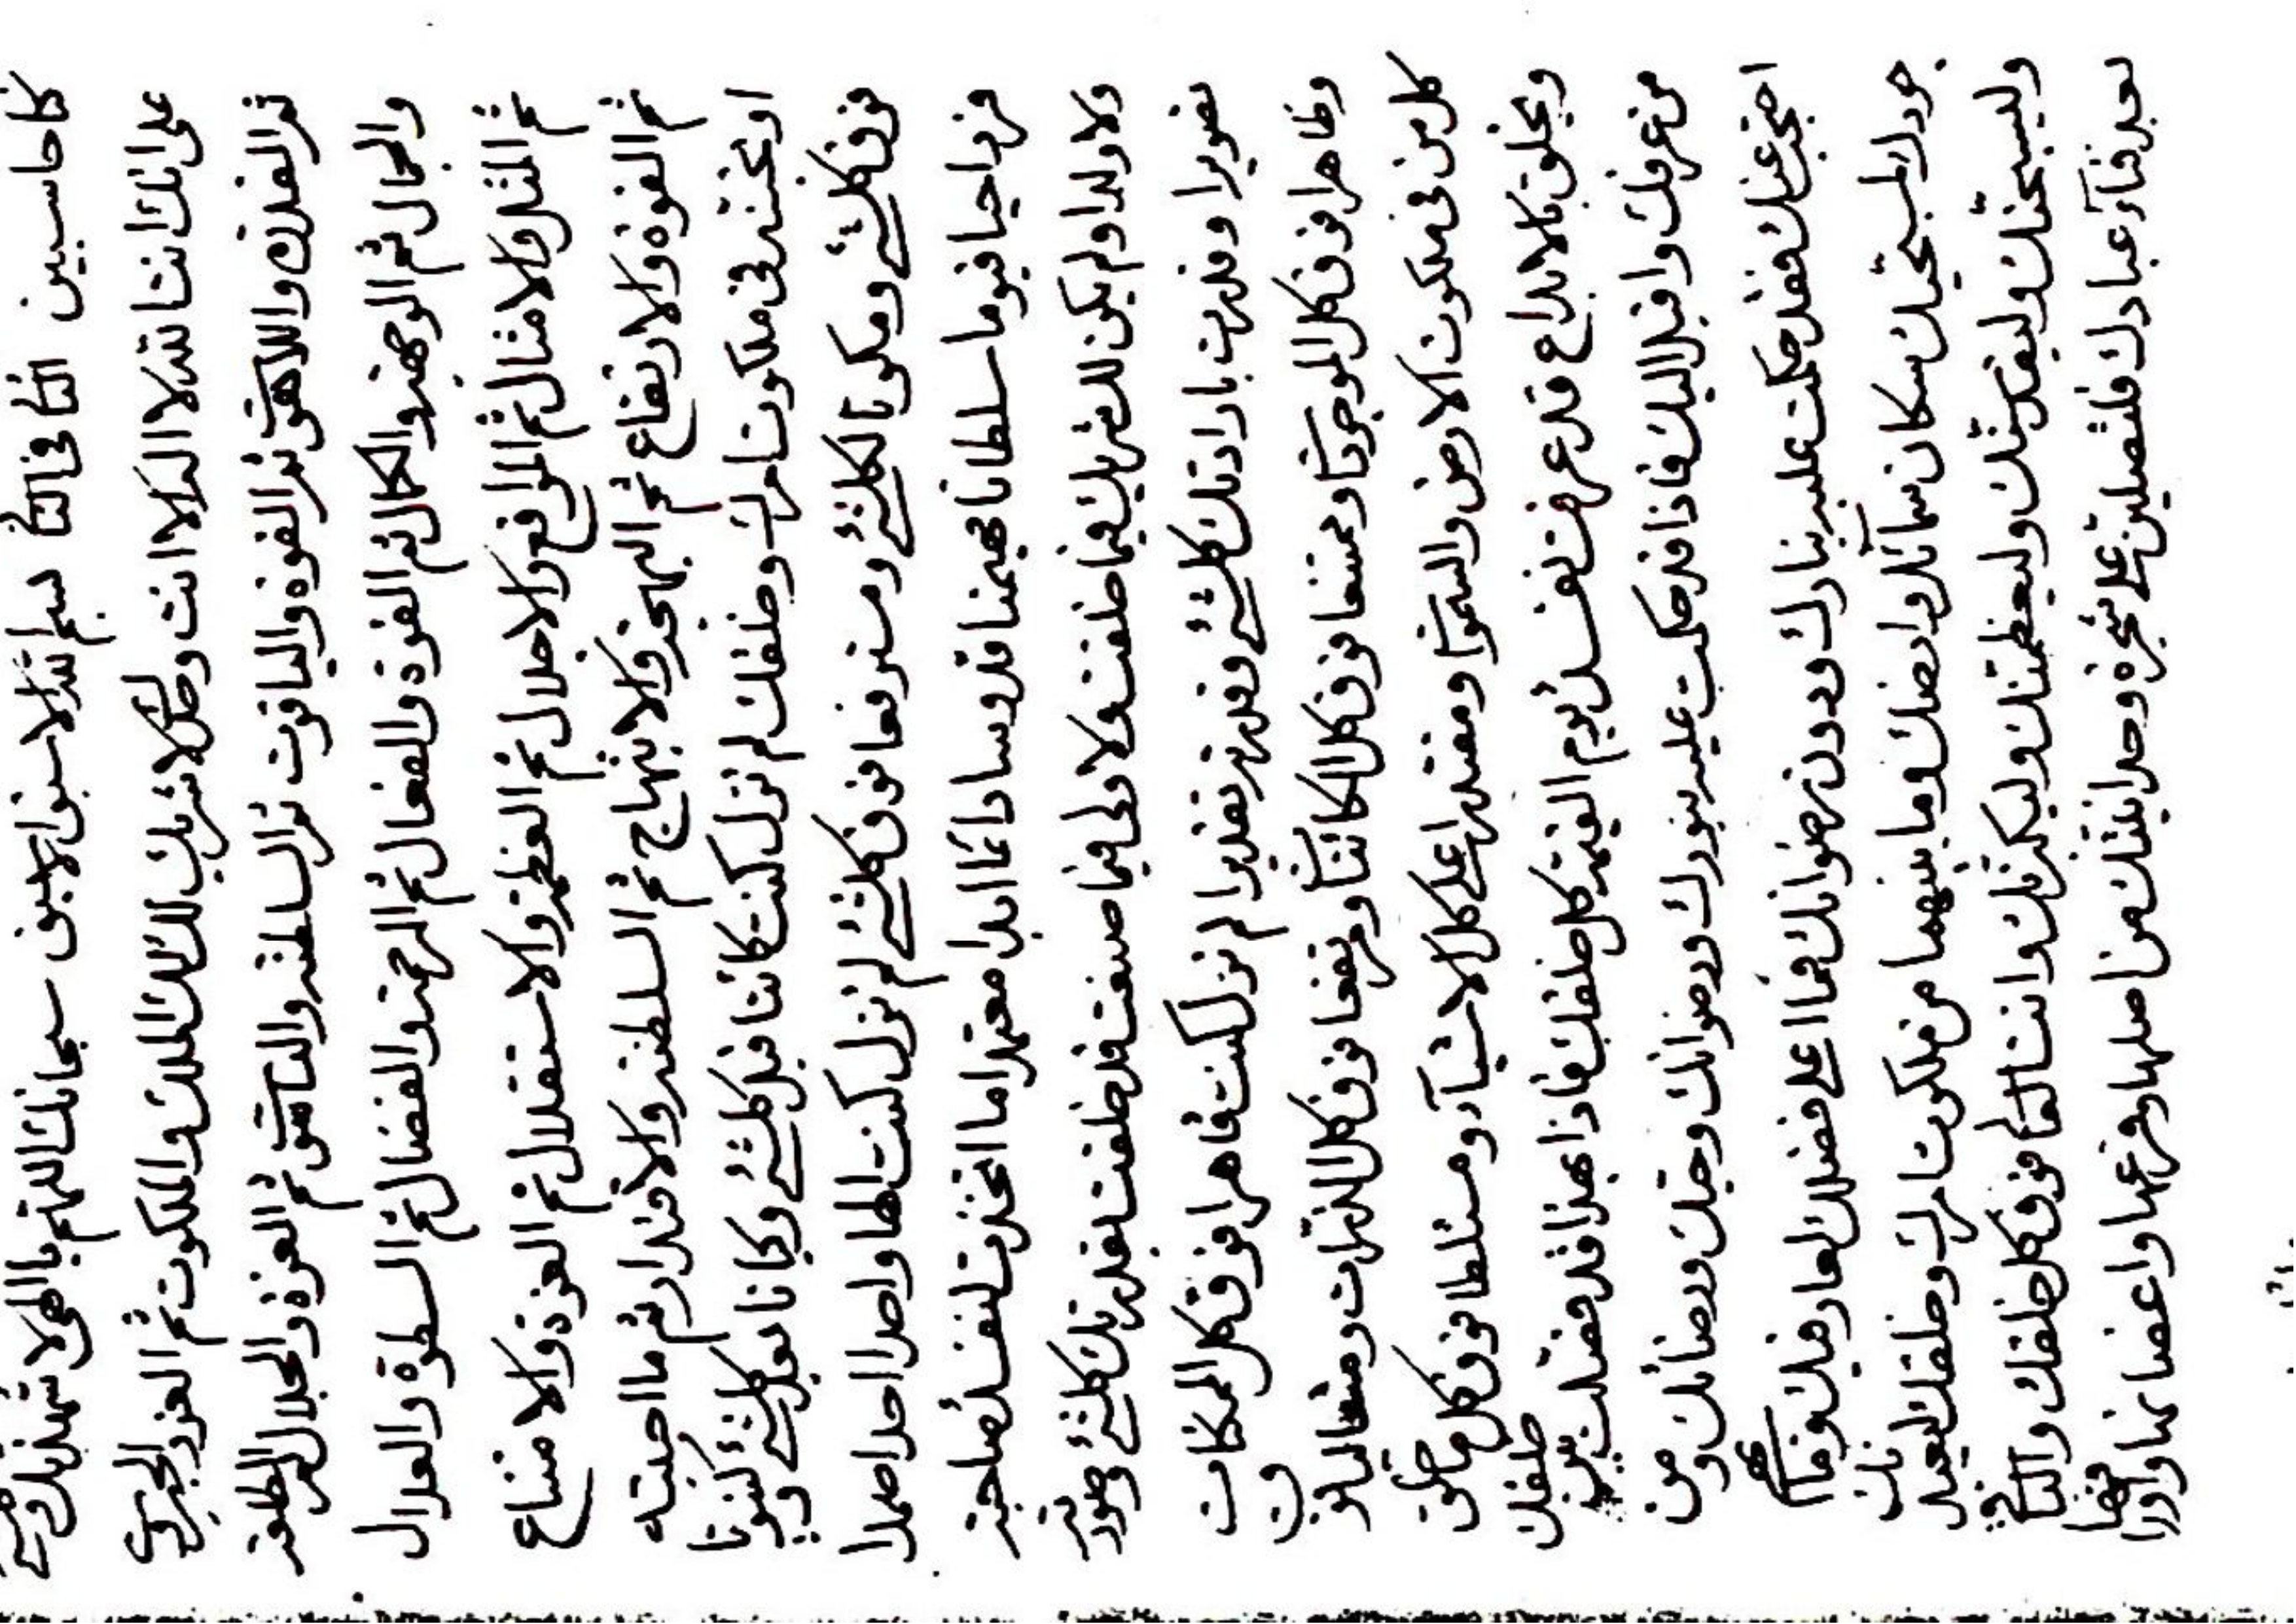 كنا حاسبين الثانی فی الثانی بسم الله الاسبق الاسبق سبحانك اللهم يا الهی لاشهدنك وكلشئ
علی انك انت الله لا اله الا انت وحدك لا شريك لك لك الملك والملكوت ثم العز والجبروت
ثم القدرة واللاهوت ثم القوة والياقوت ثم السلطنة والناسوت ثم العزة والجلال ثم الطلعة
والجمال ثم الوجهة والكمال ثم القوة والفعال ثم الرحمة والفضال ثم السطوة والعدال
ثم المثل والامثال ثم المواقع والاجلال ثم العظمة والاستقلال ثم العزة والامتناع
ثم القوة والارتفاع ثم البهجة والابتهاج ثم السلطنة والاقتدار ثم ما احببته
او تحبنه فی ملكوت امرك وخلقك لم تزل كنت كائنا قبل كلشئ وكيانا بعد كلشئ وكينونا
فوق كلشئ ومكونا لكلشئ ومسترفعا فوق كلشئ لم تزل كنت الها واحدا احدا صمدا
فردا حيا قيوما سلطانا مهيمنا قدوسا دائما ابدا معتمدا ما اتخذت لنفسك صاحبة
ولا ولدا ولم يكن لك شريك فيما خلقت ولا ولی فيما صنعت قد خلقت بقدرتك كلشئ وصورته
تصويرا وقدرت بارادتك كلشئ وقدرته تقديرا لم تزل كنت قاهرا فوق كل الممكنات
وظاهرا فوق كل الموجودات وممتنعا فوق كل الكائنات ومرتفعا فوق كل الذرات ومتعاليا فوق
كل من فی ملكوت الارض والسموات ومقتدرا علی كل الاشياء ومستلطا فوق كل ما خلق
ويخلق بالابداع قد عرفت نفسك يوم القيمة كل خلقك فاذا بهذا قد فصلت بين خلقك
من عرفك واقبل اليك فاذا قد حكمت عليه بنورك ورضوانك وحبك ورضائك ومن
احتجب عنك فقد حكمت عليه بنارك ودون رضوانك فما اعلی فضلك لعارفيك وما اتم
جودك لمحبيك سكان سمائك وارضك وما بينهما من ملكوت امرك وخلقك ليعبدنك
وليسبحنك وليقدسنك وليعظمنك وليكبرنك وانت العالی فوق كل خلقك
بعد فناء عبادك فلتصلين علی شجرة وحدانيتك من اصلها وفرعها واغصانها واوراقها